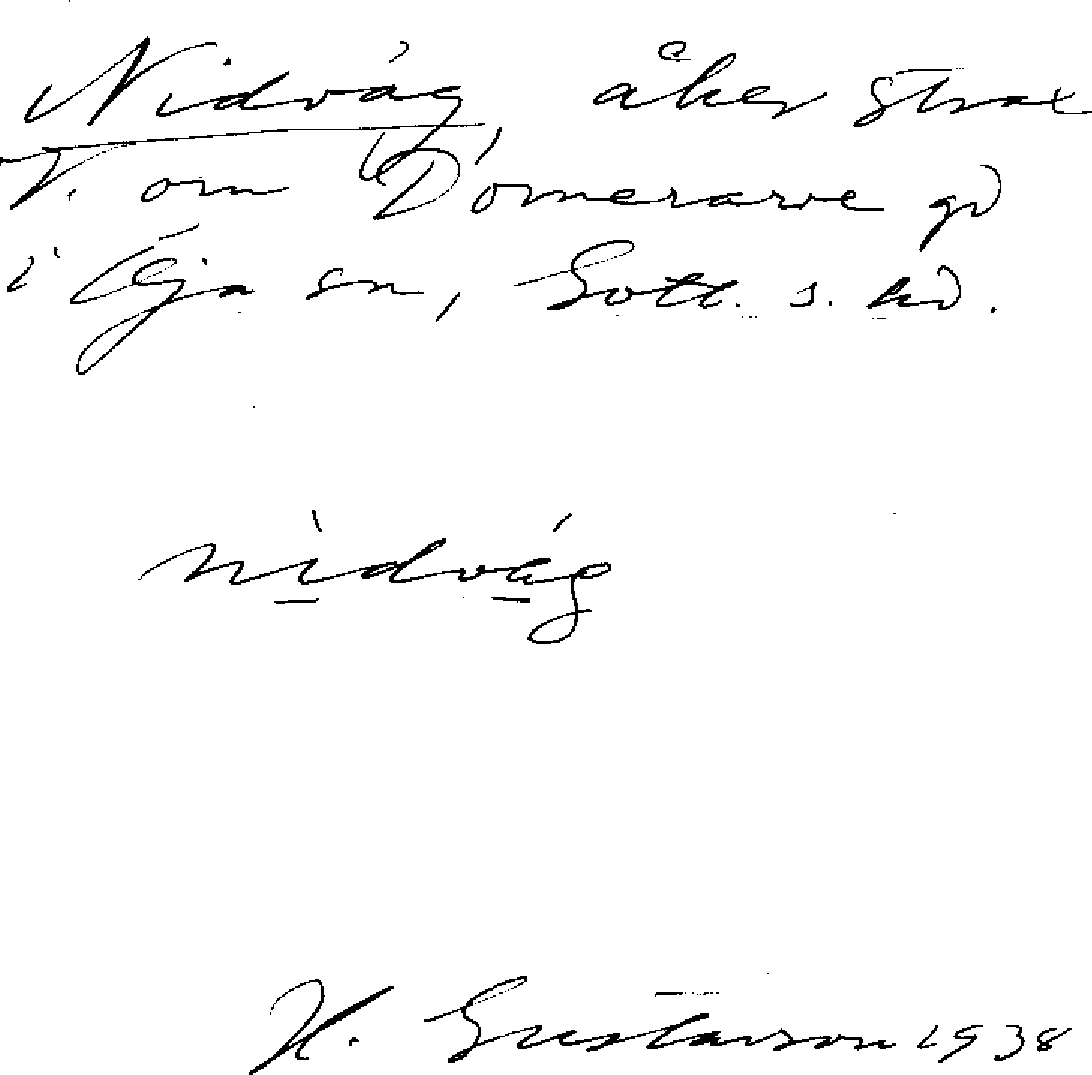 Nidvág, åker strax
V. om Domerarve gd
i Öja sn, Gotl. s. hd.
nìdvág
H. Gustavson 1938